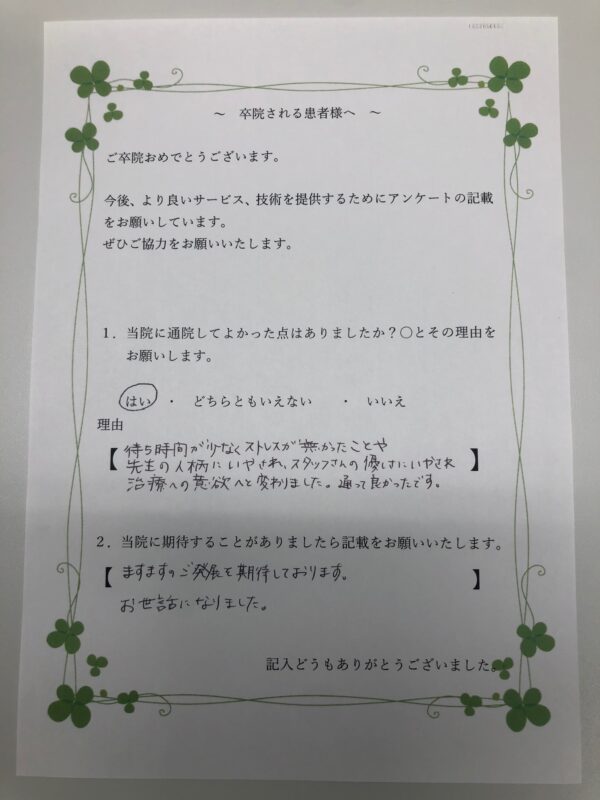 ～ 卒院される患者様へ ～
ご卒院おめでとうございます。
今後、より良いサービス、技術を提供するためにアンケートの記載
をお願いしています。
ぜひご協力をお願いいたします。
1．当院に通院してよかった点はありましたか？〇とその理由を
お願いします。
はい ・ どちらともいえない ・ いいえ
理由
【待ち時間が少なくストレスが無かったことや
先生の人柄にいやされ、スタッフさんの優しさにいやされ
治療への意欲へと変わりました。通って良かったです。】
2．当院に期待することがありましたら記載をお願いいたします。
【ますますのご発展を期待しております。
お世話になりました。】
記入どうもありがとうございました。